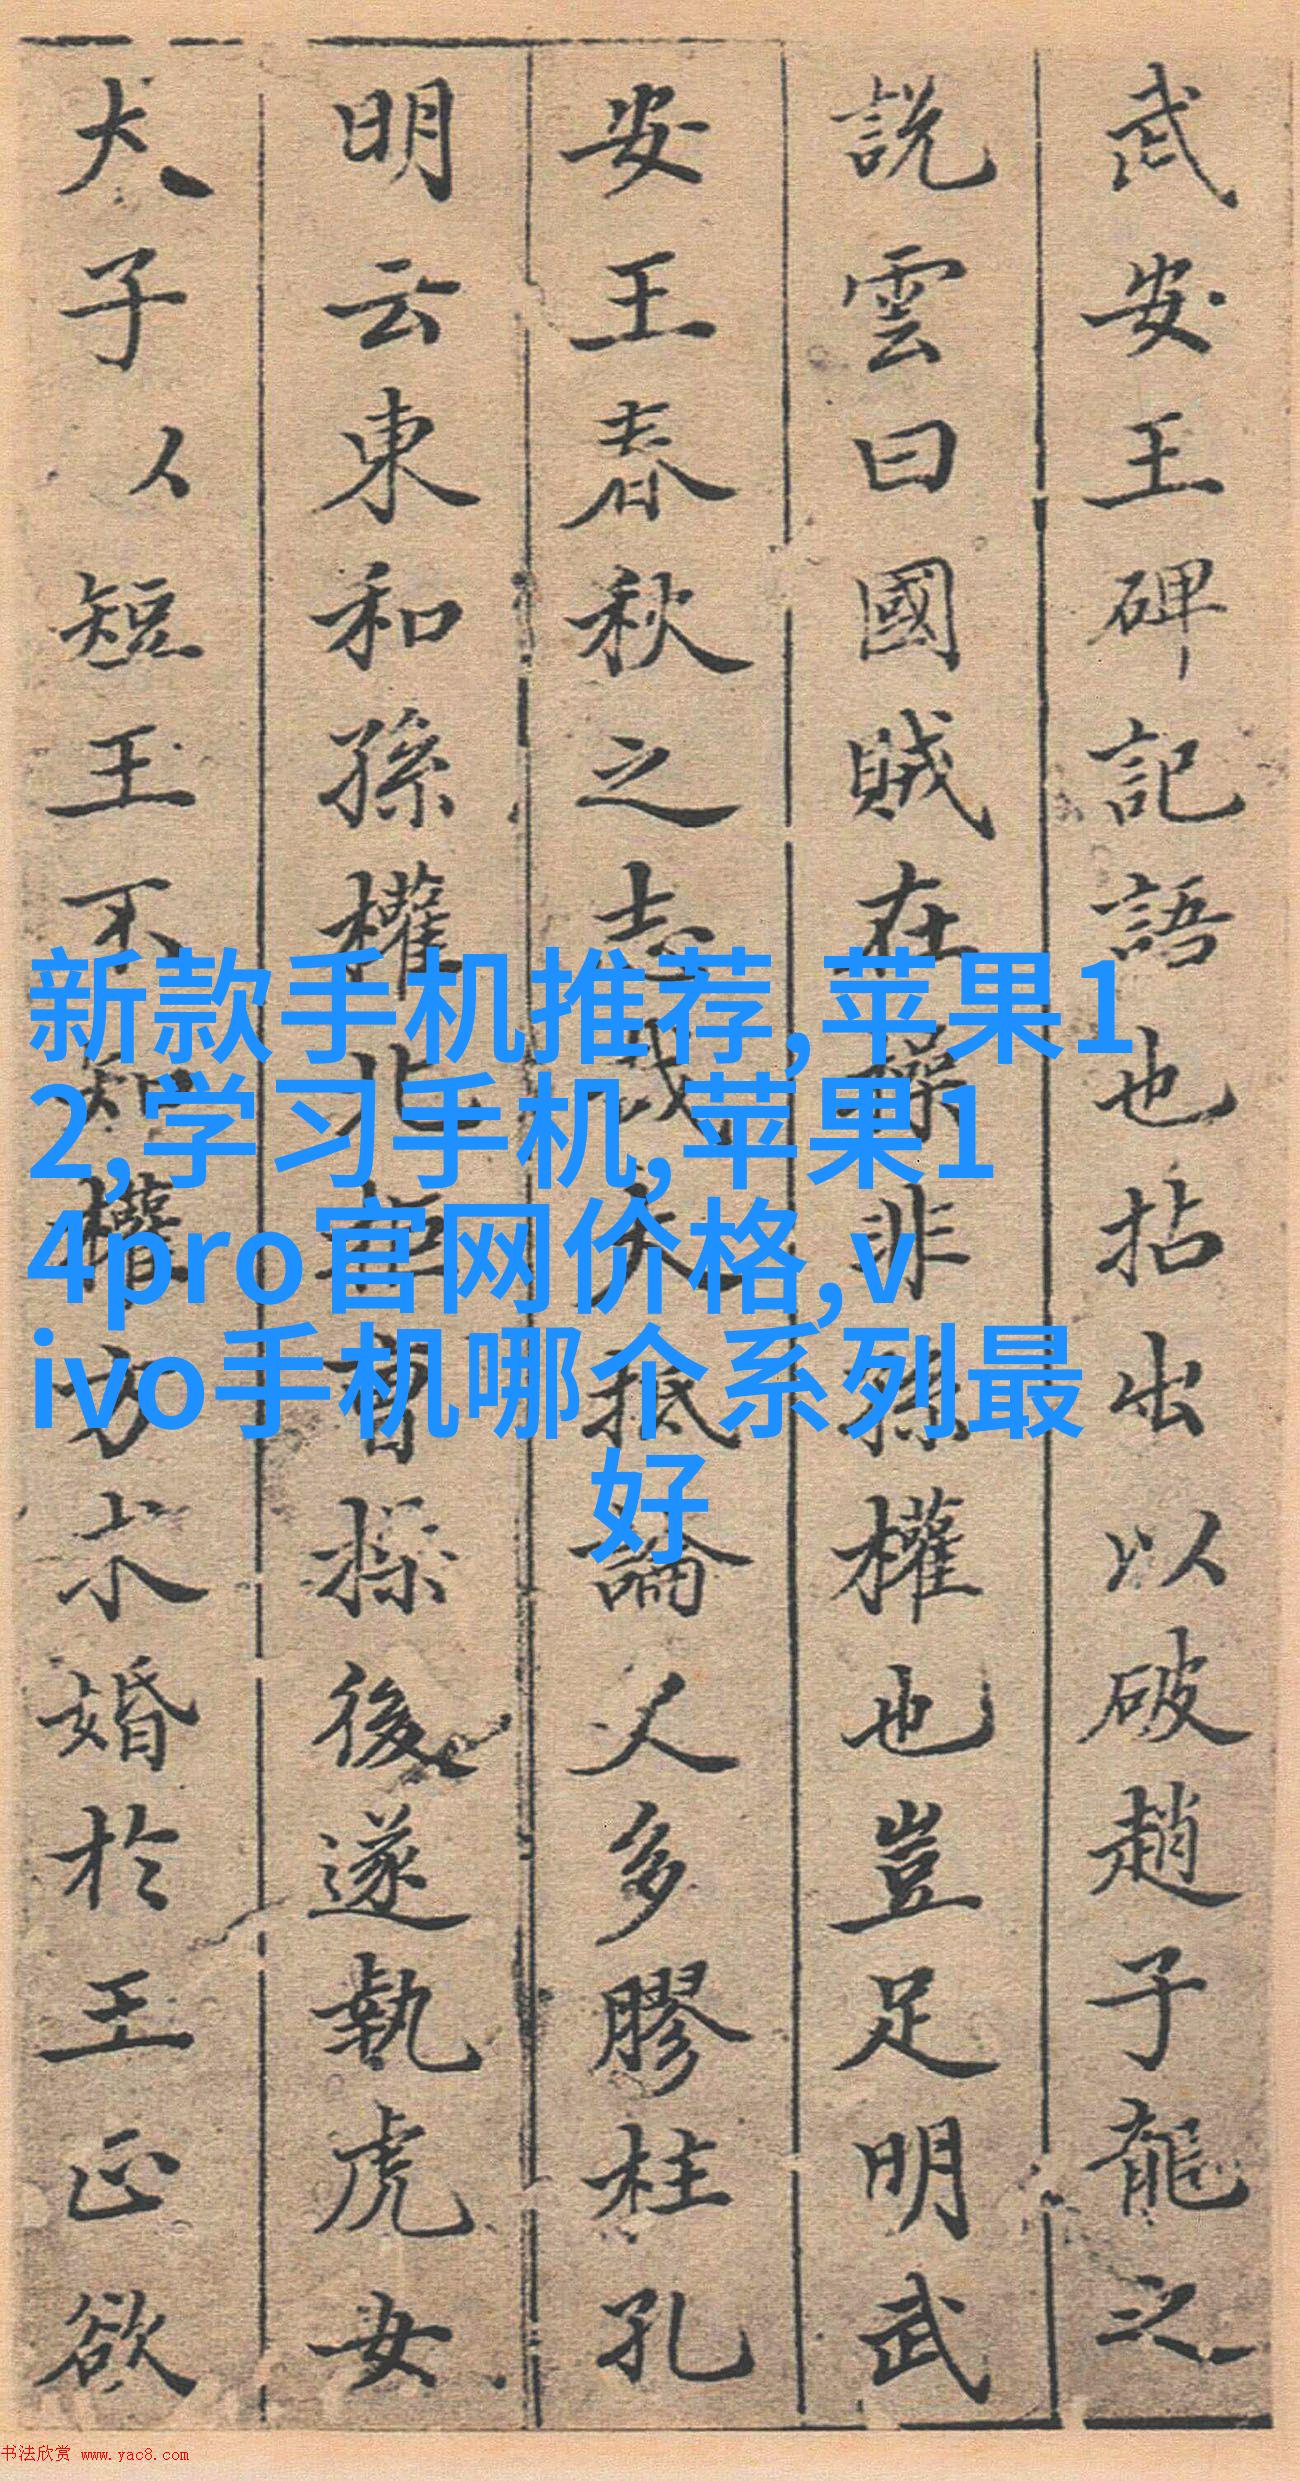 武安王碑記語也拈出以破趙子龍之
說雲曰國賊在操非孫權也豈足明武
安王春秋之志哉大抵論人多膠柱孔
明云東和孫權北拒曹操後遂執虎女
大子以短王不知權方求婚於王正欲
新款手机推荐,苹果1
2,学习手机,苹果1
4pro官网价格,v
ivo手机哪个系列最
好
书法欣赏 www.yac8.com